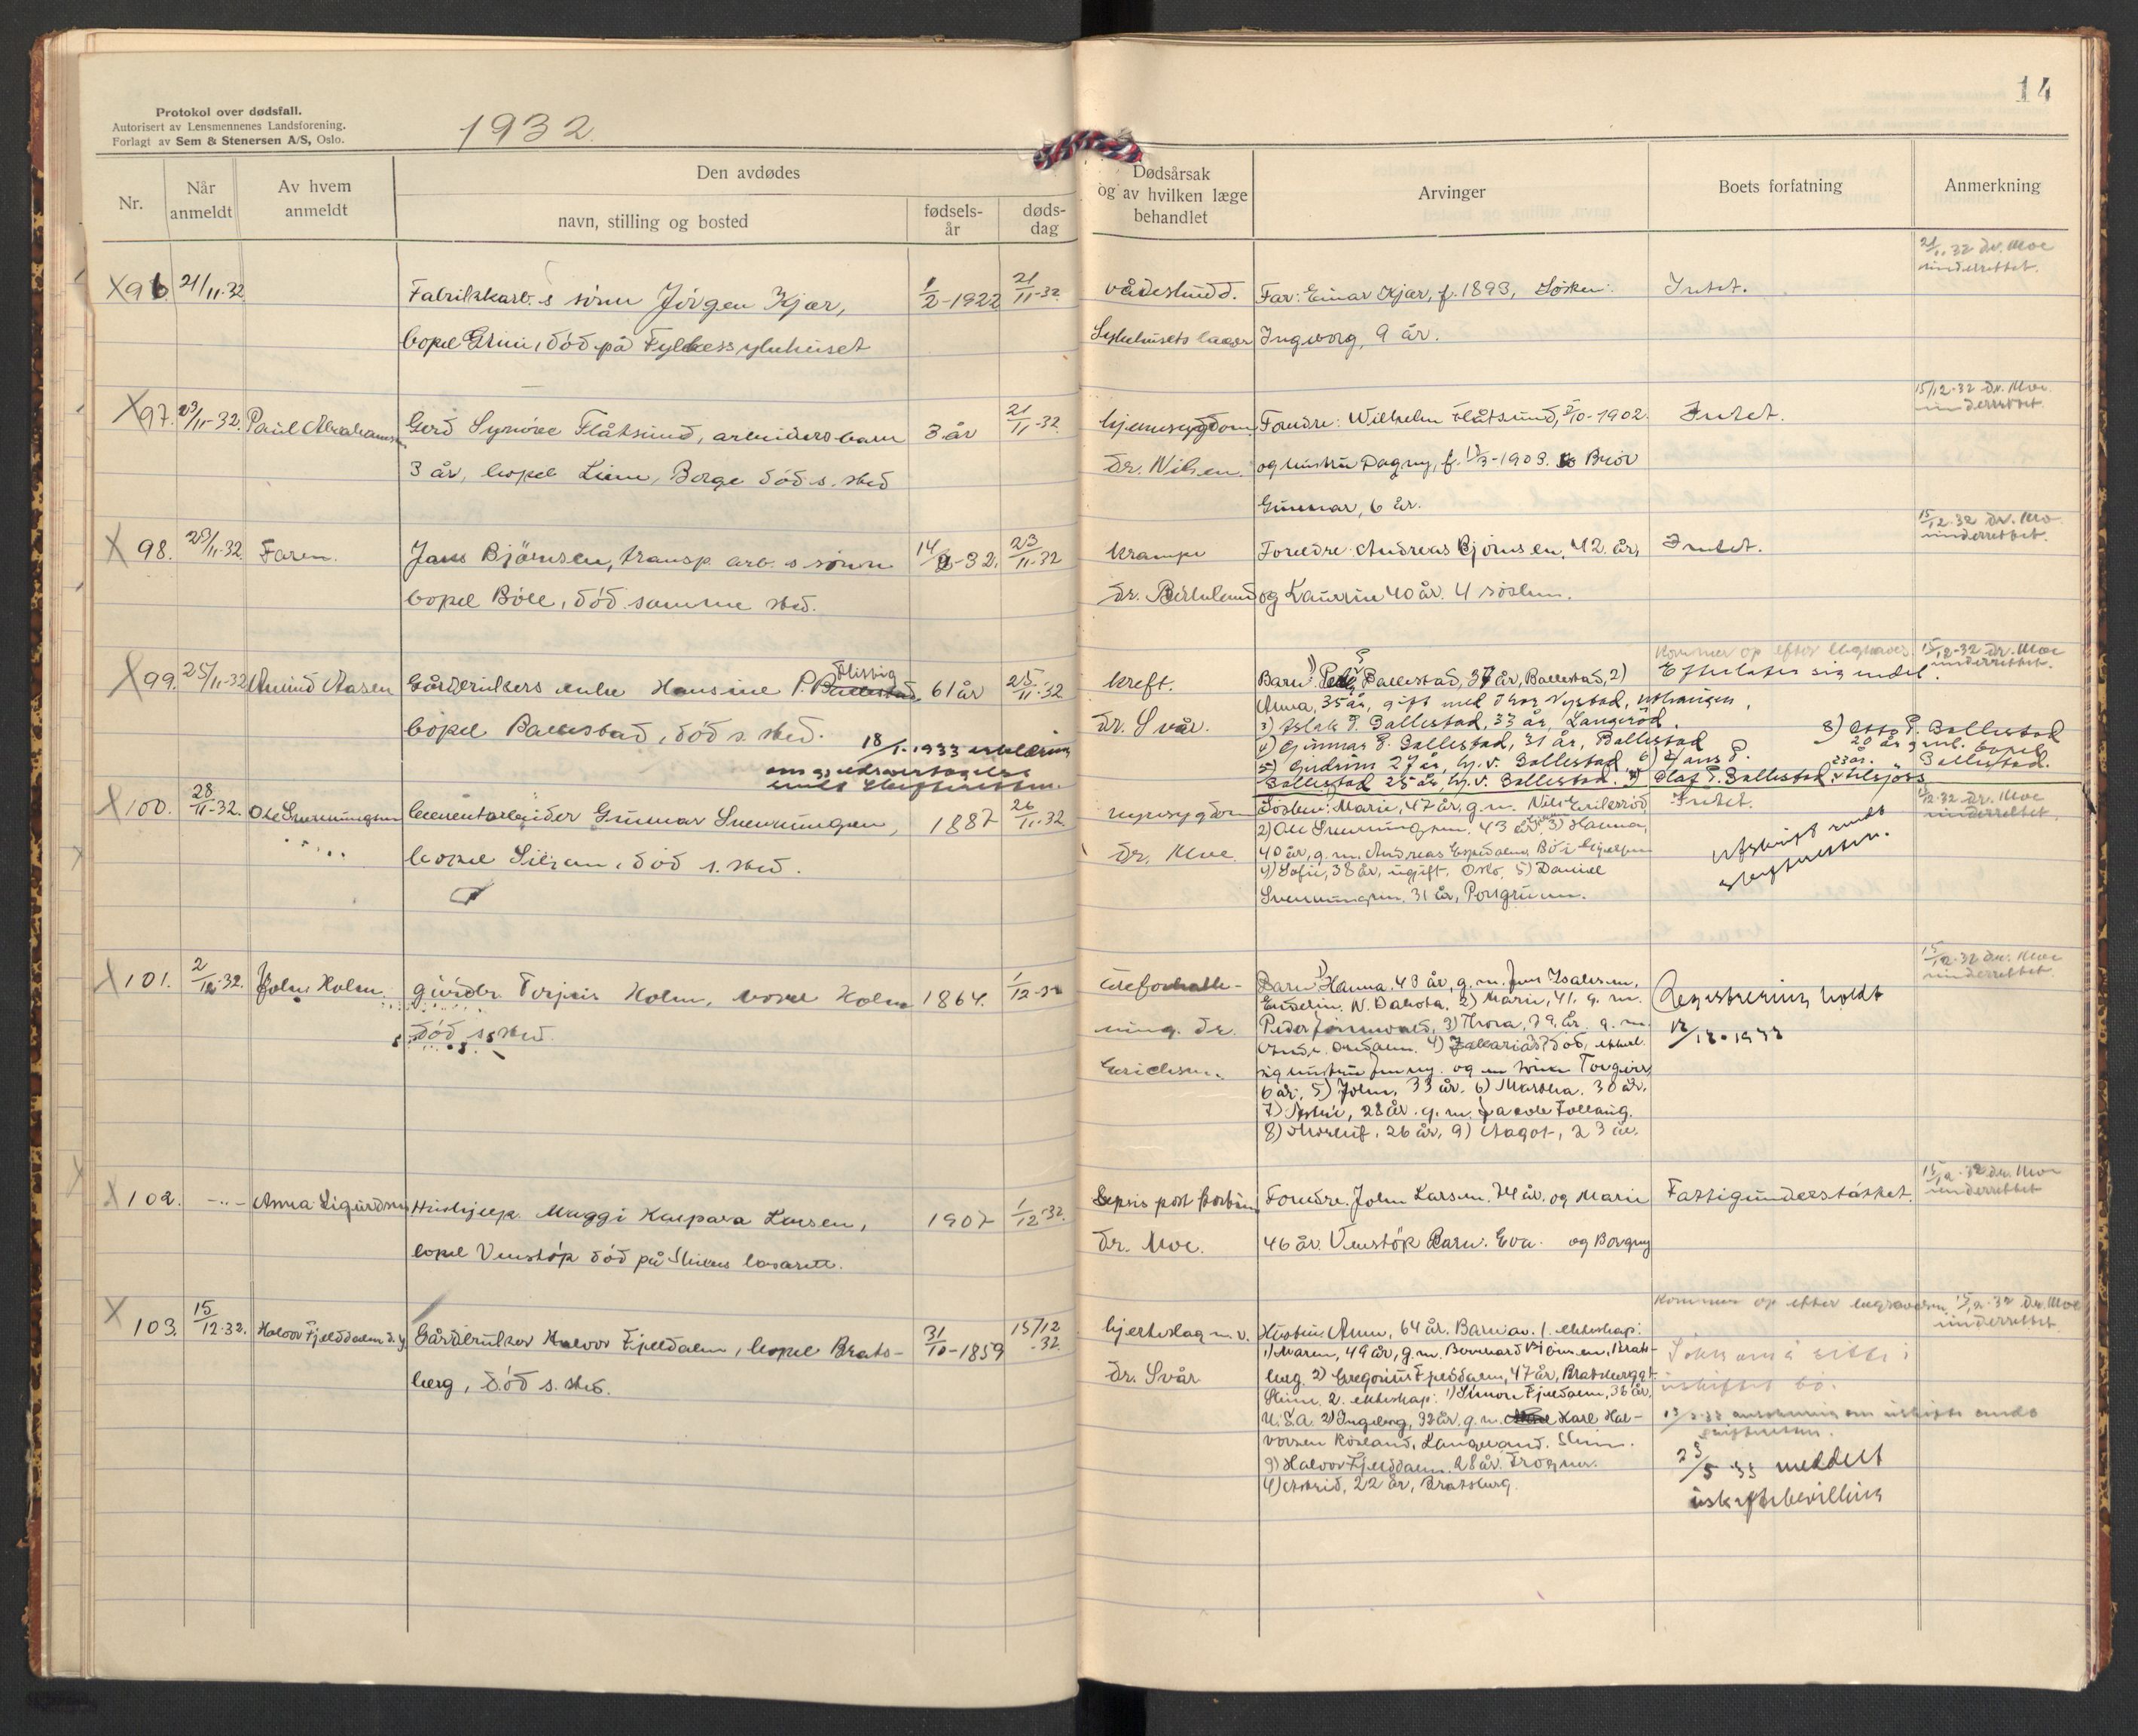 Protokol over dødsfall.
Autorisert av Lensmennenes Landsforening.
Forlagt av Sem & Stenersen A/S, Oslo.
1932.
14
Nr.
Når anmeldt
Av hvem anmeldt
Den avdødes
navn, stilling og bosted
fødsels-år
døds-dag
Dødsårsak og av hvilken læge behandlet
Arvinger
Boets forfatning
Anmerkning
X96 21/11-32 Fabrikkarb.s sönn Jörgen Kjær, 1/2-1922 21/11-32
bopel Grini, död på Fylkessykehuset
vådeskudd. Far: Einar Kjær, f. 1893, Søsken: Intet. 21/11-32 dr. Moe underrettet.
Sykehusets læger Ingeborg, 9 år.
X97. 23/11-32. Paul Abrahamsen Gerd Synnöve Flåtsund, arbeiders barn 3 år 21/11-32.
3 år, bopel Lime, Borge död s. sted
hjernesygdom Foreldre: Wilhelm Flåtsund, 5/10-1902. Intet. 15/12-32 dr. Moe underrettet.
dr. Nilsen. og hustru Dagny, f. 13-1903. Bror
Gunnar, 6 år.
X 98. 23/11-32. Faren. Jens Björnsen, transp. arb.s sönn 14/9-32. 23/11-32
bopel Böle, död samme sted.
Krampe Foreldre Andreas Björnsen, 42 år, Intet. 15/12-32 dr. Moe underrettet.
dr. og Laurine 40 år. 4 söskn.
X 99. 25/11-32 Amund Aasen Gårdbrukers enke Hansine P. Ballestad 61 år 25/11-32
bopel Ballestad, död s. sted.
18/1-1933 erklæring
om gjeldsovertagelse
sendt skifteretten.
kreft. Barn: 1) Ballestad, 37 år, Ballestad, 2) Kommer op efter begravelse. 15/12-32 dr. Moe underrettet.
Efterlater sig midel.
dr. Svår. Anna, 35 år, gift med Thor Nystad,
3) Aslak P. Ballestad, 33 år, Langeröd.
4) Gunnar P. Ballestad, 31 år, Ballestad
5) Gudrun 27 år, hj.v. Ballestad 6) Hans P.
Ballestad 25 år hj.v. Ballestad. 7) Olaf P. Ballestad 23 år.
8) Otto P. Ballestad
20 år gml. bopel
Ballestad.
X100. 28/11-32. Ole Svenningsen Cementarbeider Gunnar Svenningsen, 1887 26/11-32.
bopel Siljan, död s. sted.
nyresygdom Søsken: Marie, 47 år, g.m. Nils Eriksröd Intet. 15/12-32 dr. Moe underrettet.
dr. Moe. 2) Ole Svenningsen, 43 år, 3) Hanna,
40 år, g.m. Andreas
4) Sofie, 38 år, ugift. Oslo, 5) Daniel
Svenningsen, 31 år, Porsgrunn.
Utskrift sendt
skifteretten.
X101. 2/12-32. John Holm gårdbr. Torjus Holm, bopel Holm 1864. 1/12-32
död s. sted.
Barn 1) Hanna 43 år, g.m. Jens Isaksen, 15/12-32 dr. Moe underrettet.
Enderlin, N. Dakota, 2) Marie, 41. g.m.
ning. dr. Peder 3) Thora, 39 år. g.m.
4) Zakarias död, efterl.
Erichsen. sig hustru Jenny og en sönn Torgeir
6 år, 5) John, 33 år. 6) Martha. 30 år.
7) 28 år. g.m. Jacob
8) 26 år, 9) Aagot, 23 år.
Registrering holdt
12/12-1932
X102. -"- Anna Sigurdsen Hushjelp. Maggi Kaspara Larsen, 1907 1/12-32.
bopel Venstöp död på Skiens lasarett.
Sepsis post Foreldre. John Larsen. 74 år, og Marie Fattigunderstöttet. 15/12-32 dr. Moe underrettet
dr. Moe. 46 år. Venstöp Barn: Eva. og Borgny
X 103. 15/12-32. Halvor Fjelddalen d.y. Gårdbruker Halvor Fjelddalen, bopel Brats- 31/10-1859 15/12-32.
berg, Död s. sted.
hjerteslag m.v. Hustru Anne, 64 år. Barn av 1. ekteskap: Kommer op efter begravelsen. 15/12-32 dr. Moe underrettet
dr. Svår 1) Maren, 49 år, g.m. Bernhard Björnsen, Brats-
berg 2) Gregorius Fjelddalen, 47 år, Bratsberggt.
Skien. 2. ekteskap: 1) Simon Fjelddalen, 36 år,
U.S.A. 2) Ingeborg, 32 år. g.m. Karl Hal-
vorsen Röseand, Langesund. Skien.
3) Halvor Fjelddalen. 28 år. Frogner.
4) Astrid, 22 år, Bratsberg.
Söker om å sitte i
uskiftet bo.
ansökning om uskifte sendt
skifteretten.
23/5 33 meddelt
uskiftebevilling